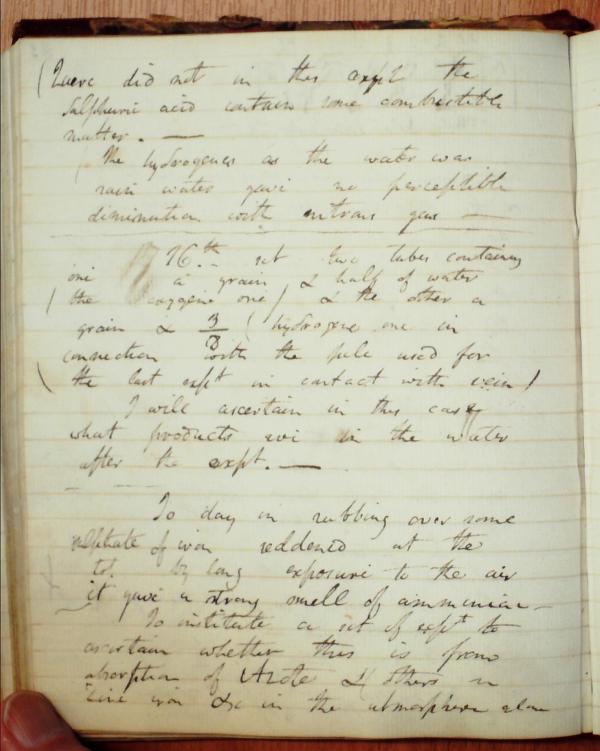 (Quere did not in this expt the
Sulphuric acid contain some combustible
matter. —
The hydrogenes as the water was
rain water gave no perceptible
diminution with nitrous gas —
16th set two tubes containing
one a grain & half of water
(the oxygene one) & the other a
grain & 3/8 (hydrogene one in
connection with the pile used for
(the last expt in contact with vein)
I will ascertain in this case
what products are in the water
after the expt. —
To day in rubbing over some
sulphate of iron reddened at the
top by long exposure to the air
it gave a strong smell of ammoniac —
To institute a set of expts to
ascertain whether this is from
absorption of Azote & others
iron &c in the atmosphere alone